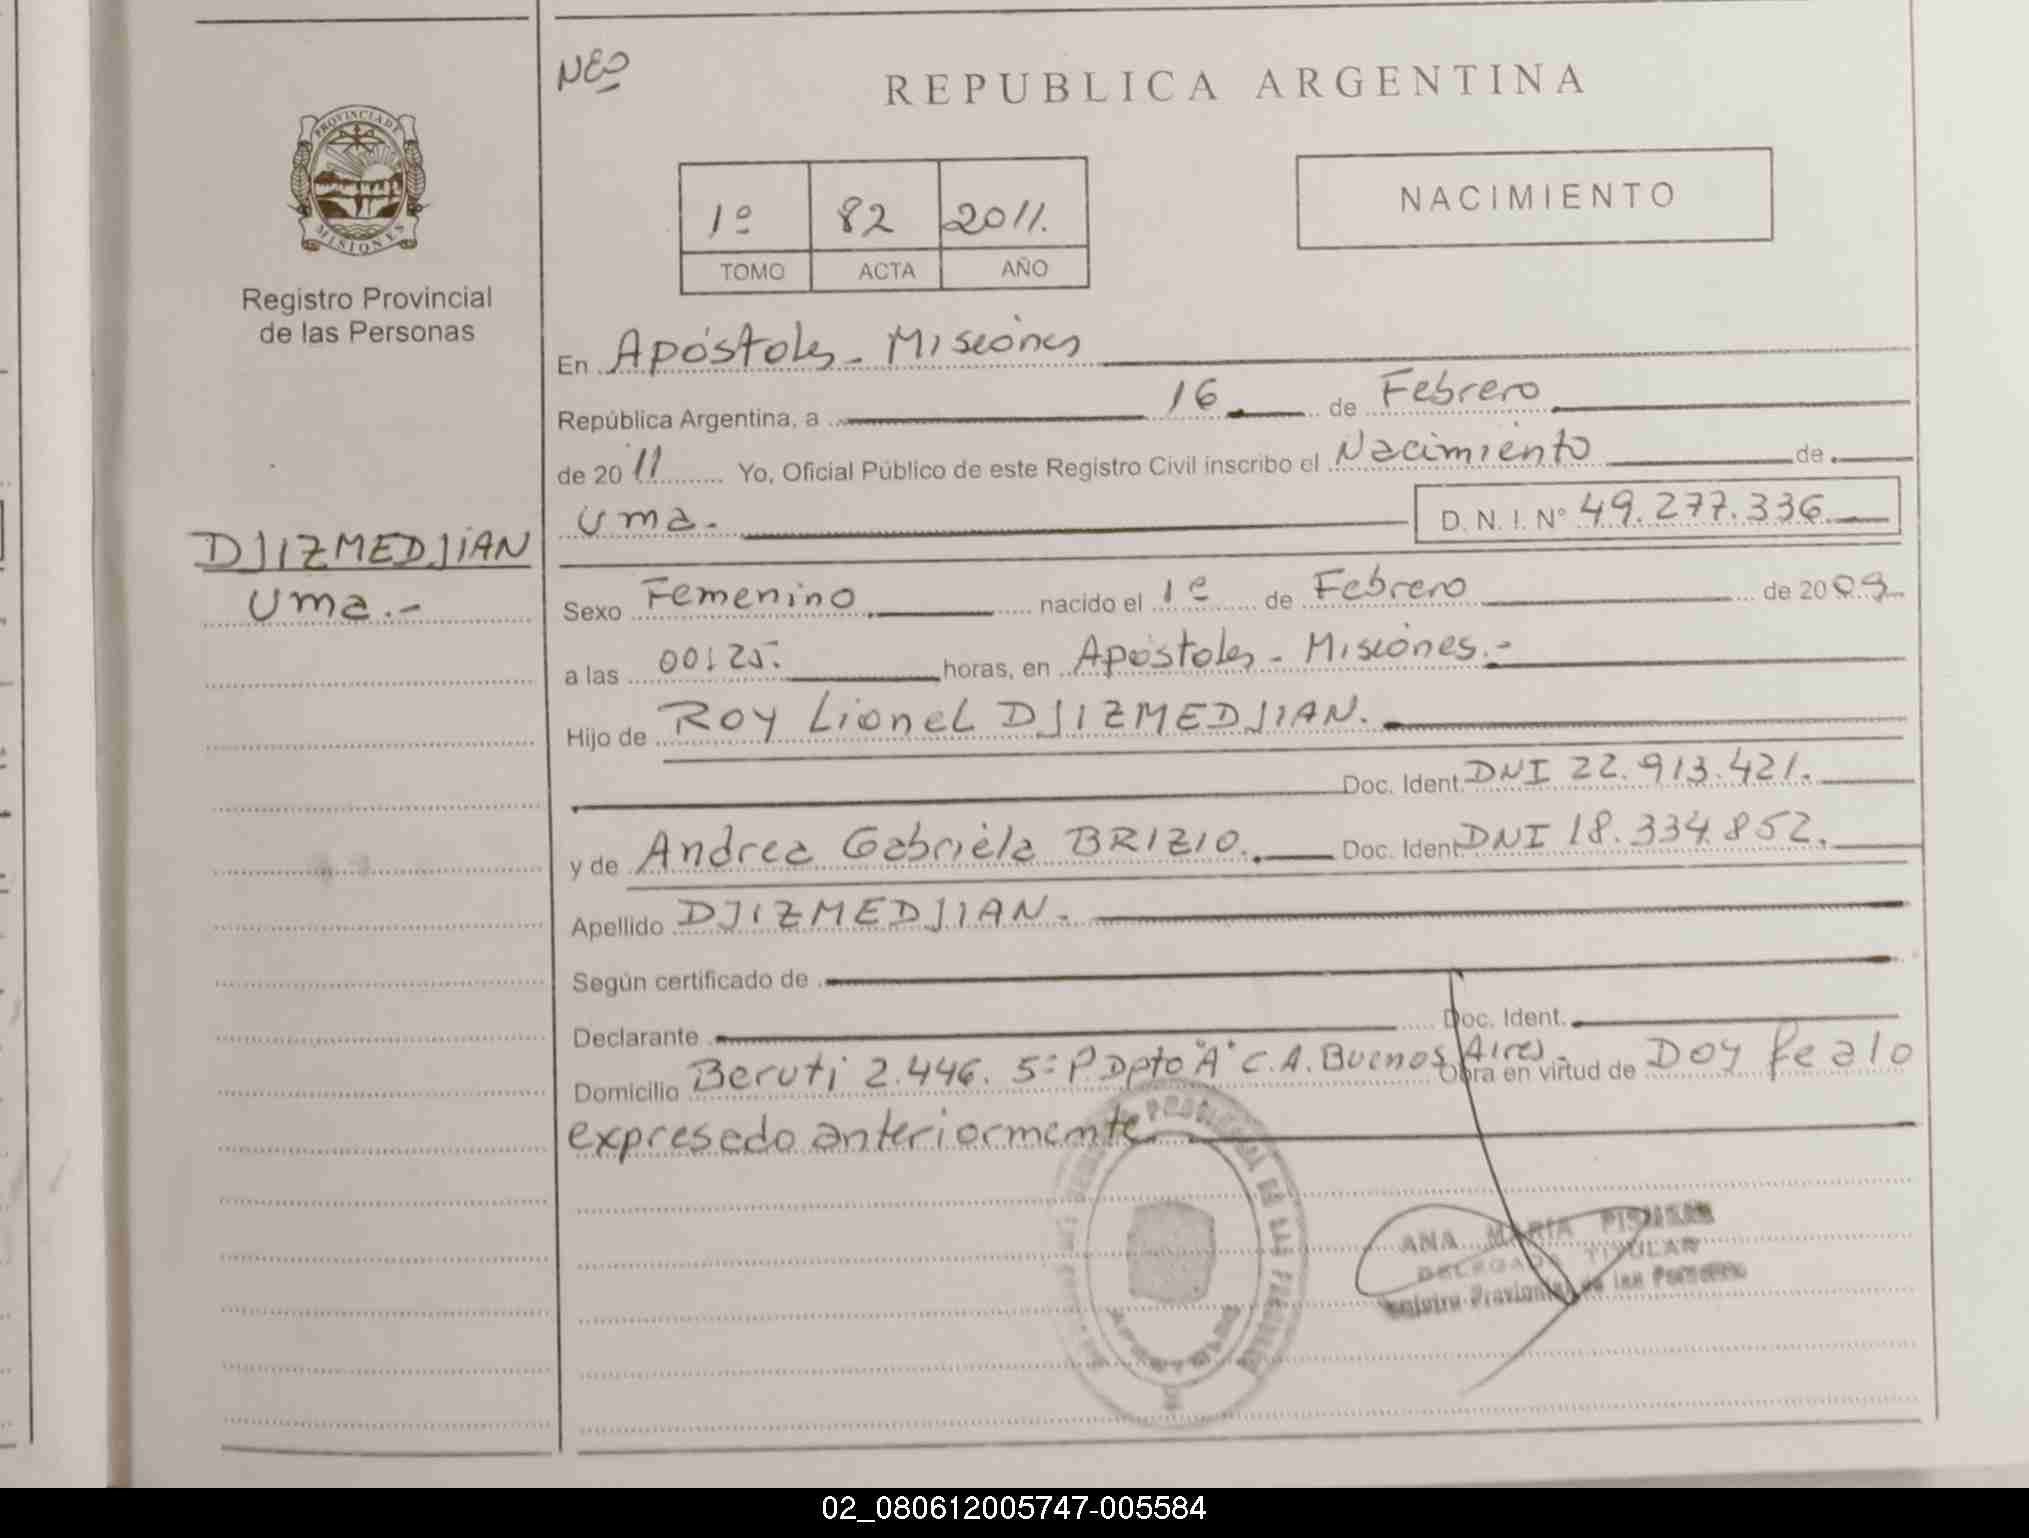 NEO
REPUBLICA ARGENTINA
PROVINCIA DE
MISIONES
Registro Provincial
de las Personas
1º 82 2011.
TOMO ACTA AÑO
NACIMIENTO
En Apóstoles - Misiones
República Argentina, a 16 de Febrero
de 2011 Yo, Oficial Público de este Registro Civil inscribo el Nacimiento de
Uma. D. N. I. Nº 49.277.336
DJIZMEDJIAN
Uma.-
Sexo Femenino nacido el 1º de Febrero de 2009
a las 00:25. horas, en Apóstoles - Misiones.-
Hijo de ROY LIONEL DJIZMEDJIAN.
Doc. Ident. DNI 22.913.421.
y de Andrea Gabriela BRIZIO. Doc. Ident. DNI 18.334.852.
Apellido DJIZMEDJIAN.
Según certificado de
Declarante Doc. Ident.
Domicilio Beruti 2.446. 5º P. Dpto "A" C.A. Buenos Aires. Obra en virtud de Doy fe a lo
expresado anteriormente
ANA MARIA
DELEGADO TITULAR
Registro Provincial de las Personas
02_080612005747-005584